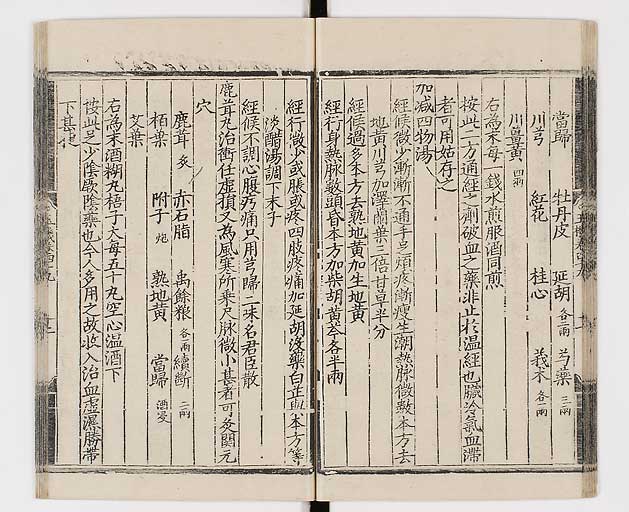 當歸 牡丹皮 延胡各一兩 芍藥三兩
川芎 紅花 桂心 莪朮各一兩
川薑黃四兩
右為末每一錢水煎服酒同煎
按此二方通經之劑破血之藥非止於温經也臟冷氣血滯
者可用姑存之
加减四物湯
經候微少漸漸不通手足煩疼漸瘦生潮熱脉微數本方去
地黃川芎加澤蘭葉三倍甘草半分
經候過多本方去熟地黃加生地黃
經行身熱脉數頭昏本方加柴胡黃芩各半兩
經行微少或脹或疼四肢疼痛加延胡没藥白芷與本方等
淡醋湯調下末子
經候不調心腹疞痛只用芎歸二味名君臣散
鹿茸丸治衝任虚損又為風寒所乘尺脉微小甚者可灸關元
穴
鹿茸炙 赤石脂 禹餘粮各一兩 續斷二兩
栢葉 附子炮 熟地黃 當歸酒浸
艾葉
右為末酒糊丸梧子大每五十丸空心温酒下
按此足少陰厥陰藥也今人多用之故收入治血虚濕勝帶
下甚捷